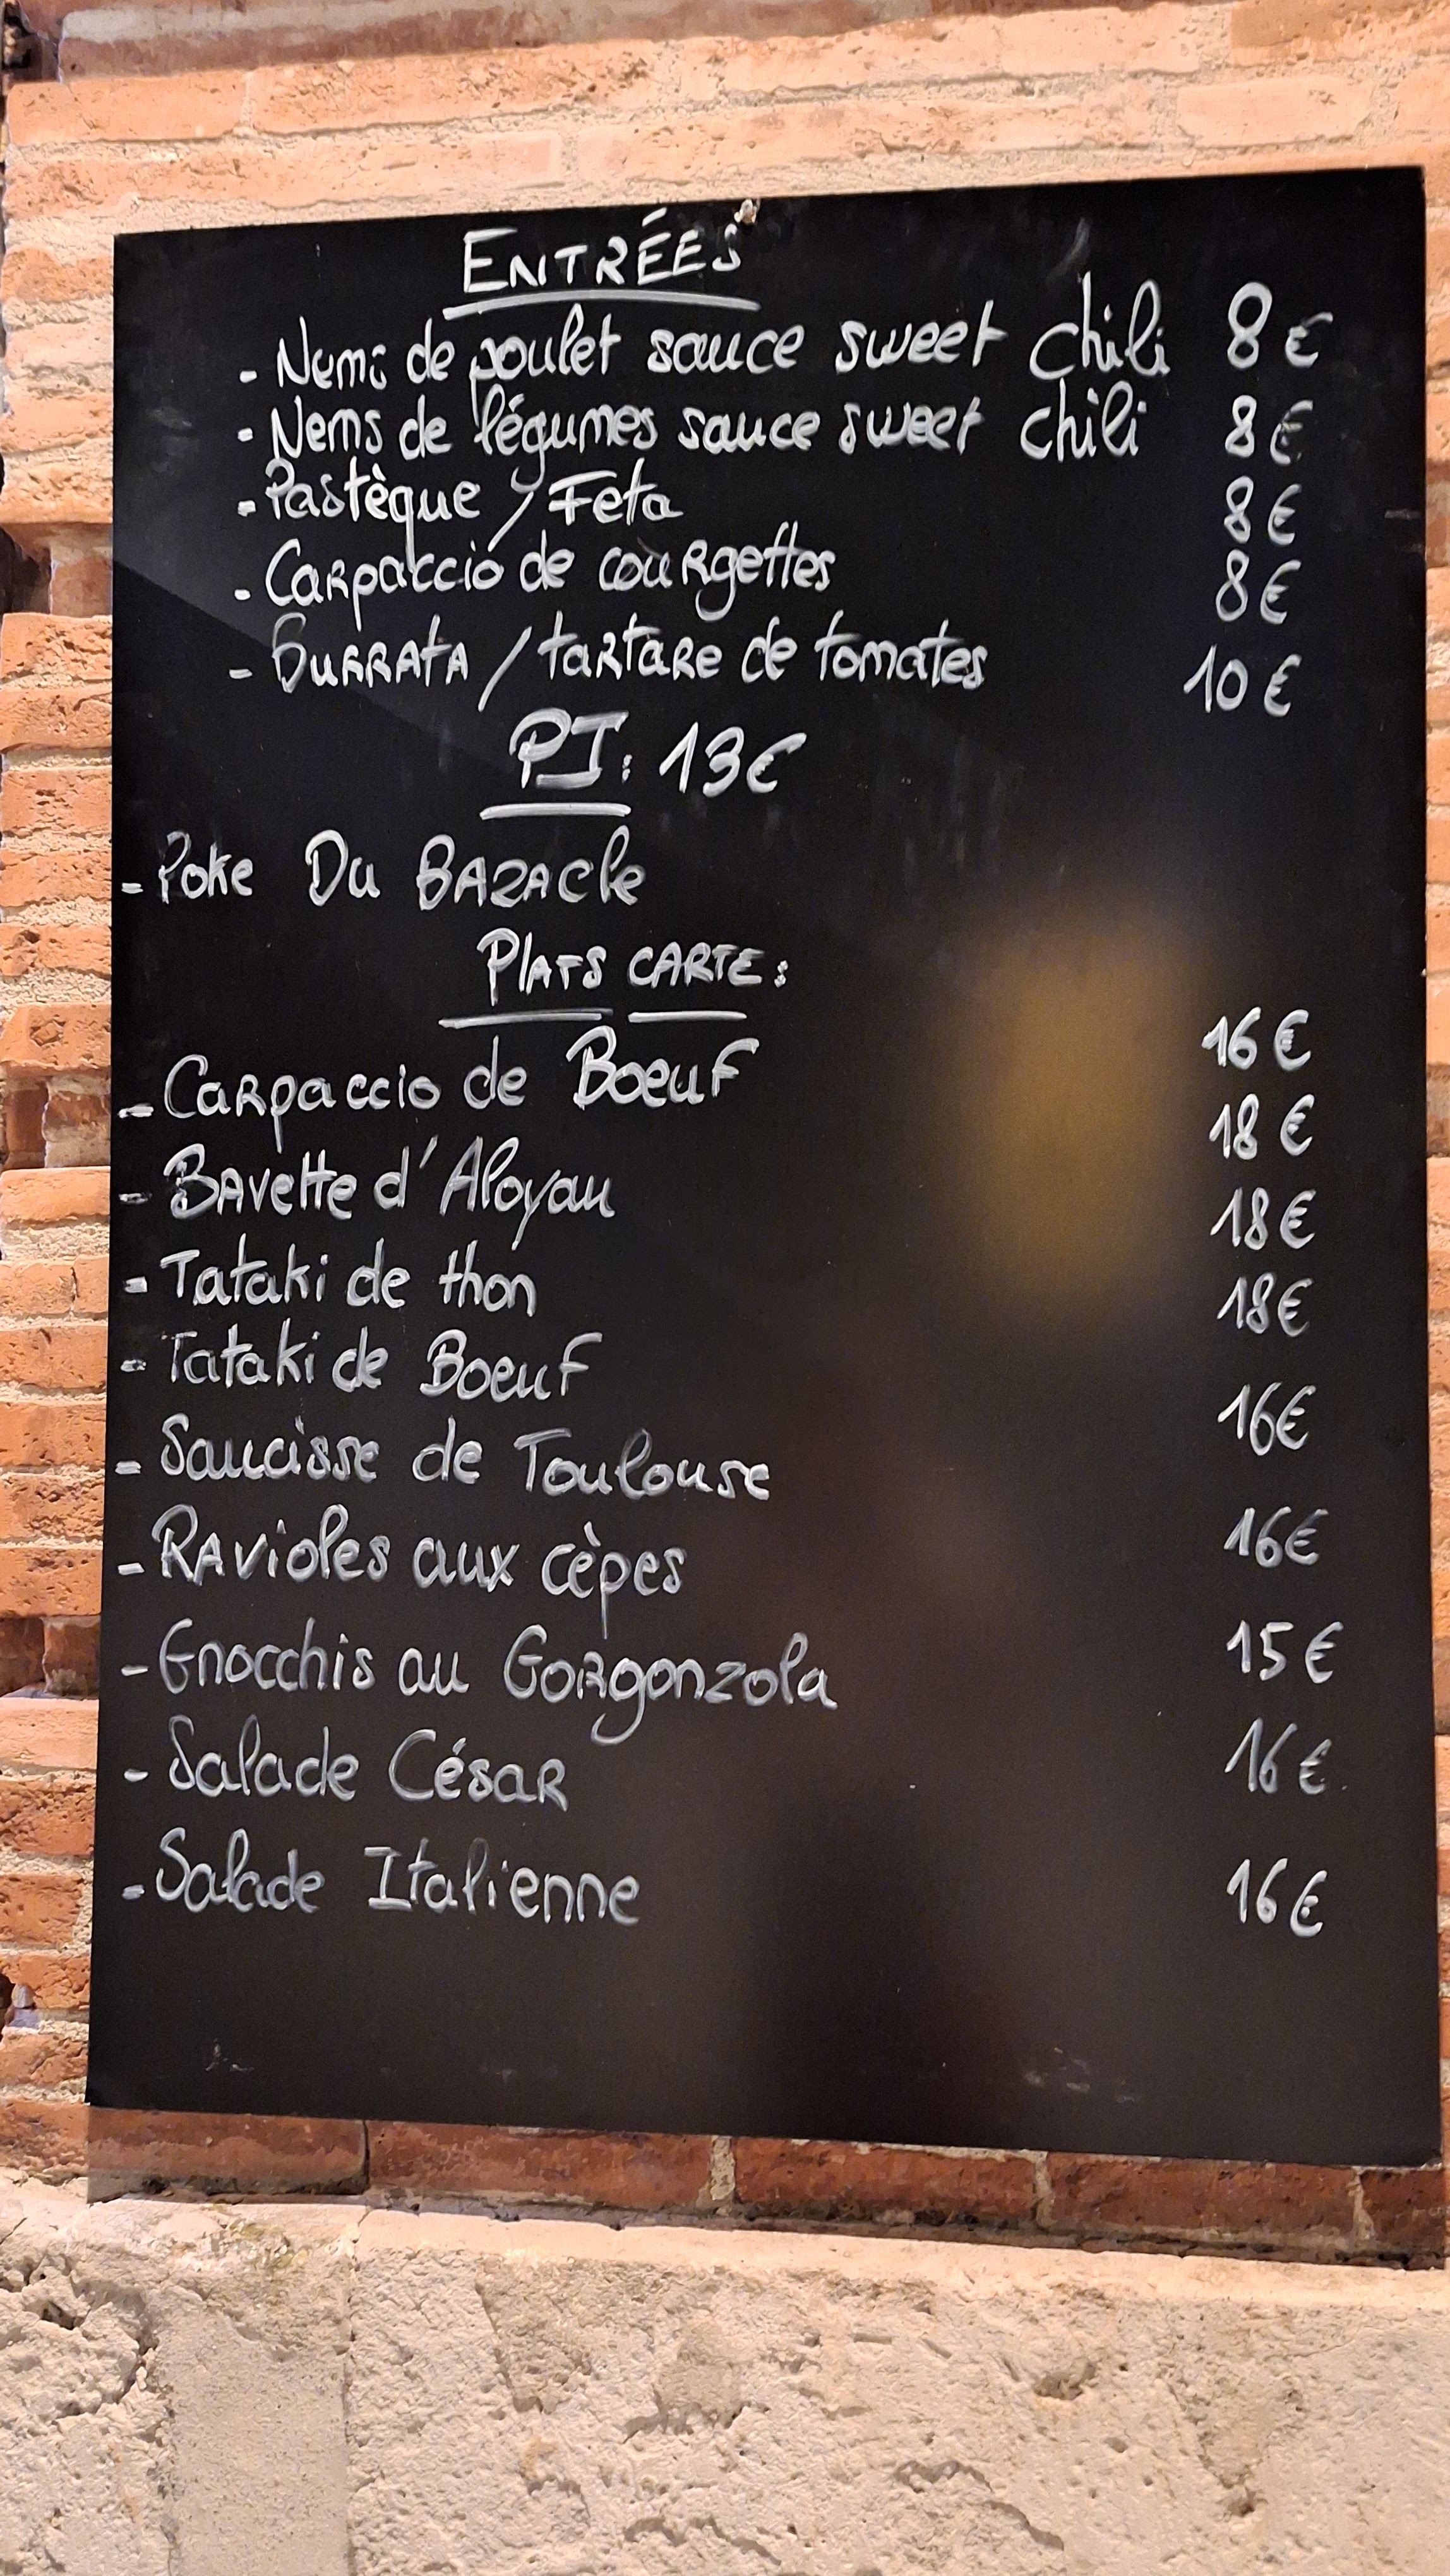 ENTRÉES
- Nems de poulet sauce sweet chili 8€
- Nems de légumes sauce sweet chili 8€
- Pastèque / Feta 8€
- Carpaccio de courgettes 8€
- Burrata / tartare de tomates 10€
PJ: 13€
- Poke Du Bazacle
PLATS CARTE:
- Carpaccio de Boeuf 16€
- Bavette d'Aloyau 18€
- Tataki de thon 18€
- Tataki de Boeuf 18€
- Saucisse de Toulouse 16€
- Ravioles aux cèpes 16€
- Gnocchis au Gorgonzola 15€
- Salade César 16€
- Salade Italienne 16€